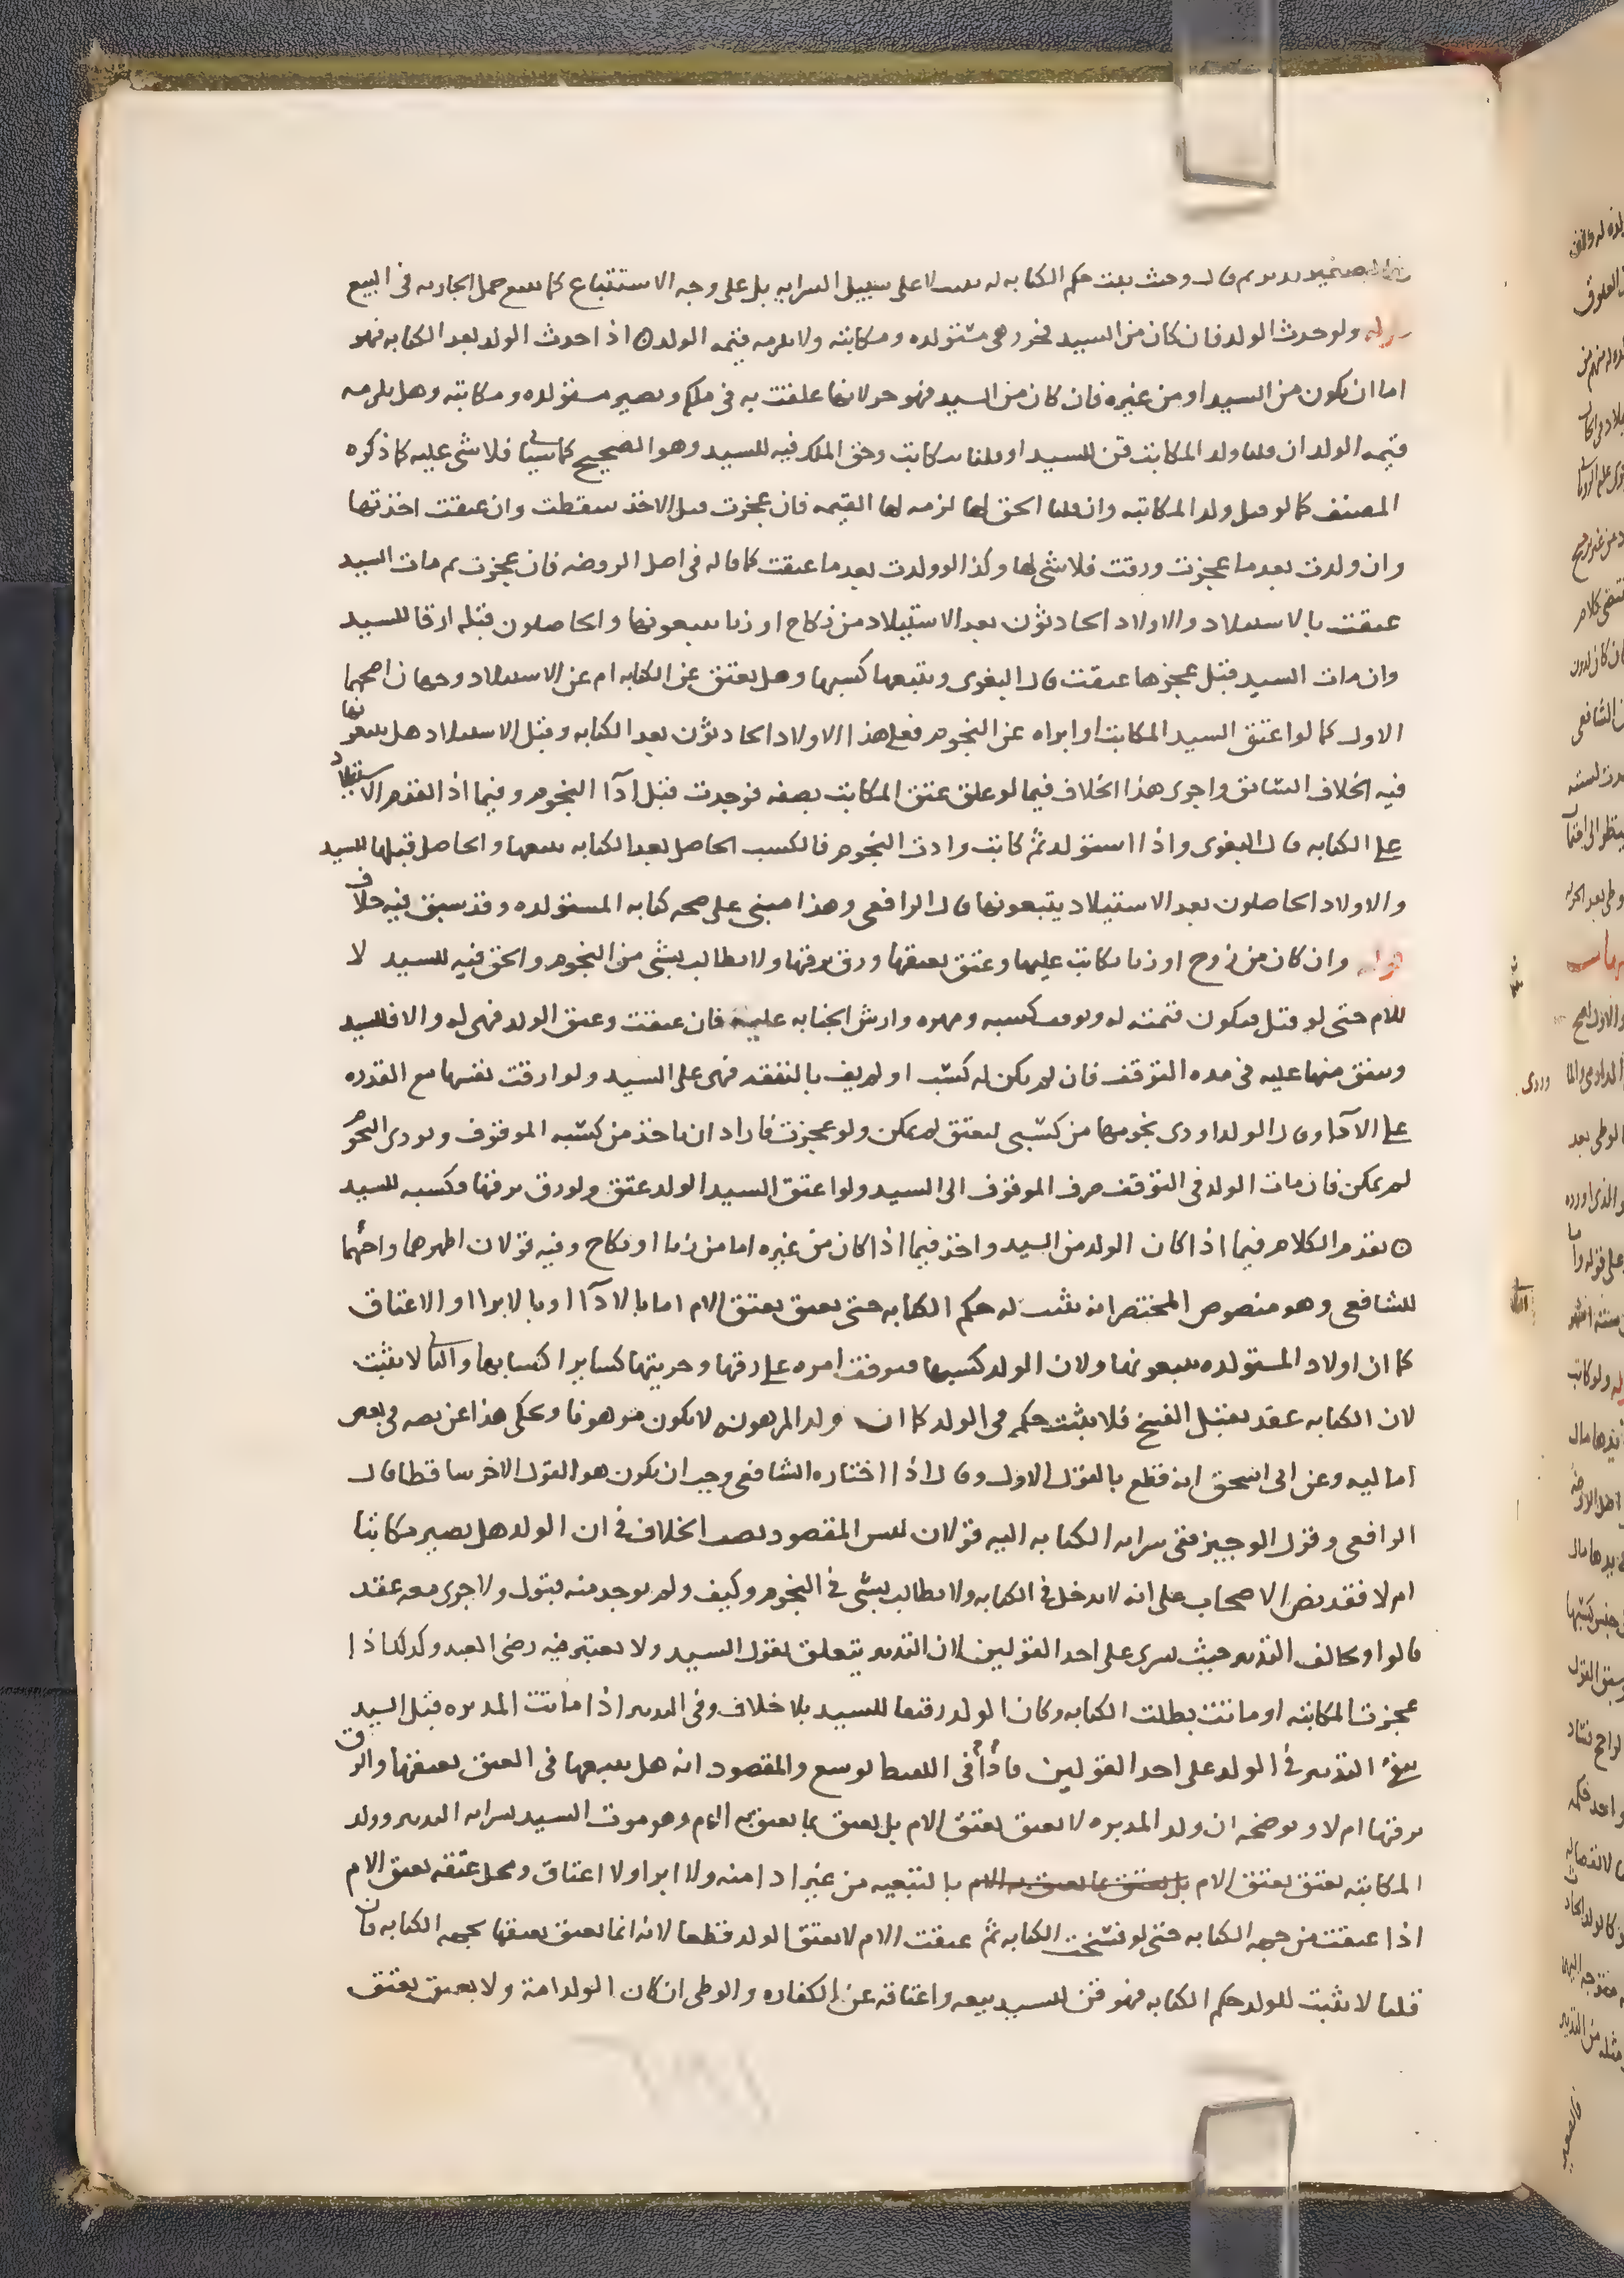 ثم قال وحيث يثبت حكم الكتابة له يثبت لا على سبيل السراية بل على وجه الاستتباع كما يتبع حمل الجارية في البيع
قوله ولو حدث الولد فان كان من السيد فحر وهي مستولده ومكاتبته ولا يلزمه قيمه الولد ۞ اذا حدث الولد بعد الكتابه فهو
اما ان يكون من السيد او من غيره فان كان من السيد فهو حر لانها علقت به في ملكه وتصير مستولده ومكاتبته وهل يلزمه
قيمه الولد ان قلنا ولد المكاتبه قن للسيد او قلنا مكاتب وحق الملك فيه للسيد وهو الصحيح كما سياتي فلا شي عليه كما ذكره
المصنف كما لو قتل ولد المكاتبه وان قلنا الحق لها لزمه لها القيمه فان عجزت قبل الاخذ سقطت وان عتقت اخذتها
وان ولدت بعد ما عجزت ورقت فلا شي لها وكذا لو ولدت بعد ما عتقت كما قاله في اصل الروضه فان عجزت ثم مات السيد
عتقت بالاستيلاد والاولاد الحادثون بعد الاستيلاد من نكاح او زنا يتبعونها والحاصلون قبله ارقا للسيد
وان مات السيد قبل عجزها عتقت قال البغوي ويتبعها كسبها وهل يعتق عن الكتابه ام عن الاستيلاد وجهان اصحهما
الاول كما لو اعتق السيد المكاتب او ابراه عن النجوم فعلى هذا الاولاد الحادثون بعد الكتابه وقبل الاستيلاد هل يتبعونها
فيه الخلاف السابق واجرى هذا الخلاف فيما لو علق عتق المكاتب بصفه فوجدت قبل ادآ النجوم وفيما اذا تقدم الاستيلاد
على الكتابه قال البغوي واذا استولد ثم كاتب وادت النجوم فالكسب الحاصل بعد الكتابه يتبعها والحاصل قبلها للسيد
والاولاد الحاصلون بعد الاستيلاد يتبعونها قال الرافعي وهذا مبني على صحه كتابه المستولده وقد سبق فيه خلاف
قوله وان كان من زوج او زنا تكاتب عليها وعتق بعتقها ورق برقها ولا يطالب بشي من النجوم والحق فيه للسيد لا
للام حتى لو قتل تكون قيمته له ويوقف كسبه ومهره وارش الجنايه عليه فان عتقت وعتق الولد فهي له والا فللسيد
وينفق منها عليه في مده التوقف فان لم يكن له كسب او لم يف بالنفقه فهي على السيد ولو ارقت نفسها مع القدره
على الادآ وقال الولد اودي نجومها من كسبي لتعتق لم يمكن ولو عجزت فاراد ان ياخذ من كسبه الموقوف ويودي النجوم
لم يمكن فان مات الولد في التوقف صرف الموقوف الى السيد ولو اعتق السيد الولد عتق ولو رق برقها فكسبه للسيد
۞ تقدم الكلام فيما اذا كان الولد من السيد واخذ فيما اذا كان من غيره اما من زنا او نكاح وفيه قولان اظهرهما واصحهما
للشافعي وهو منصوص المختصر انه يثبت له حكم الكتابه حتى يعتق بعتق الام اما بالادآ او بالابرا او الاعتاق
كما ان اولاد المستولده يتبعونها ولان الولد كسبها فيوقف امره على رقها وحريتها كساير اكسابها والثاني لا يثبت
لان الكتابه عقد يقبل الفسخ فلا يثبت حكمه في الولد كما ان ولد المرهونه لا يكون مرهونا ويحكى هذا عن نصه في بعض
اماليه وعن ابي اسحق انه قطع بالقول الاول وقال اذا اختاره الشافعي وجب ان يكون هو القول الاخر ساقطا قال
الرافعي وقول الوجيز ففي سرايه الكتابه اليه قولان ليس المقصود نصب الخلاف في ان الولد هل يصير مكاتبا
ام لا فقد نص الاصحاب على انه لا يدخل في الكتابه ولا يطالب بشي في النجوم وكيف ولم يوجد منه قبول ولا جرى معه عقد
قالوا ويخالف التدبير حيث يسرى على احد القولين لان التدبير يتعلق بقول السيد ولا يعتبر فيه رضى العبد وكذلك اذا
عجزت المكاتبه او ماتت بطلت الكتابه وكان الولد رقيقا للسيد بلا خلاف وفي التدبير اذا ماتت المدبره قبل السيد
يبقى التدبير في الولد على احد القولين فاذا في اللفظ توسع والمقصود انه هل يتبعها في العتق بعتقها والرق
برقها ام لا ويوضحه ان ولد المدبره لا يعتق بعتق الام بل يعتق بما تعتق به الام وهو موت السيد لسرايه التدبير وولد
المكاتبه يعتق بعتق الام بل يعتق بما تعتق به الام بالتبعيه من غير ادا منه ولا ابرا ولا اعتاق ومحل عتقه بعتق الام
اذا عتقت من جهه الكتابه حتى لو فسخت الكتابه ثم عتقت الام لا يعتق الولد قطعا لانه انما يعتق بعتقها بجهه الكتابه فان
قلنا لا يثبت للولد حكم الكتابه فهو قن للسيد بيعه واعتاقه عن الكفاره والوطي ان كان الولد امة ولا يعتق بعتق